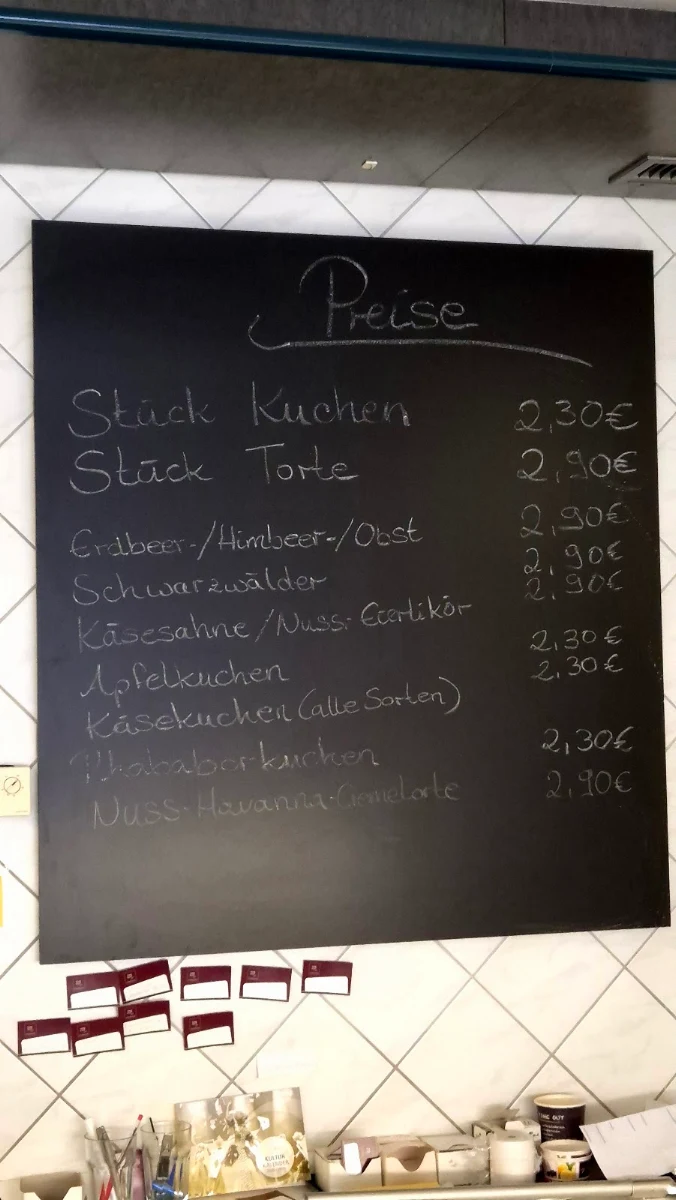 Preise
Stück Kuchen 2,30€
Stück Torte 2,90€
Erdbeer-/Himbeer-/Obst 2,90€
Schwarzwälder 2,90€
Käsesahne/Nuss-Eierlikör 2,90€
Apfelkuchen 2,30€
Käsekuchen (alle Sorten) 2,30€
Rhababerkuchen 2,30€
Nuss-Havanna- 2,90€